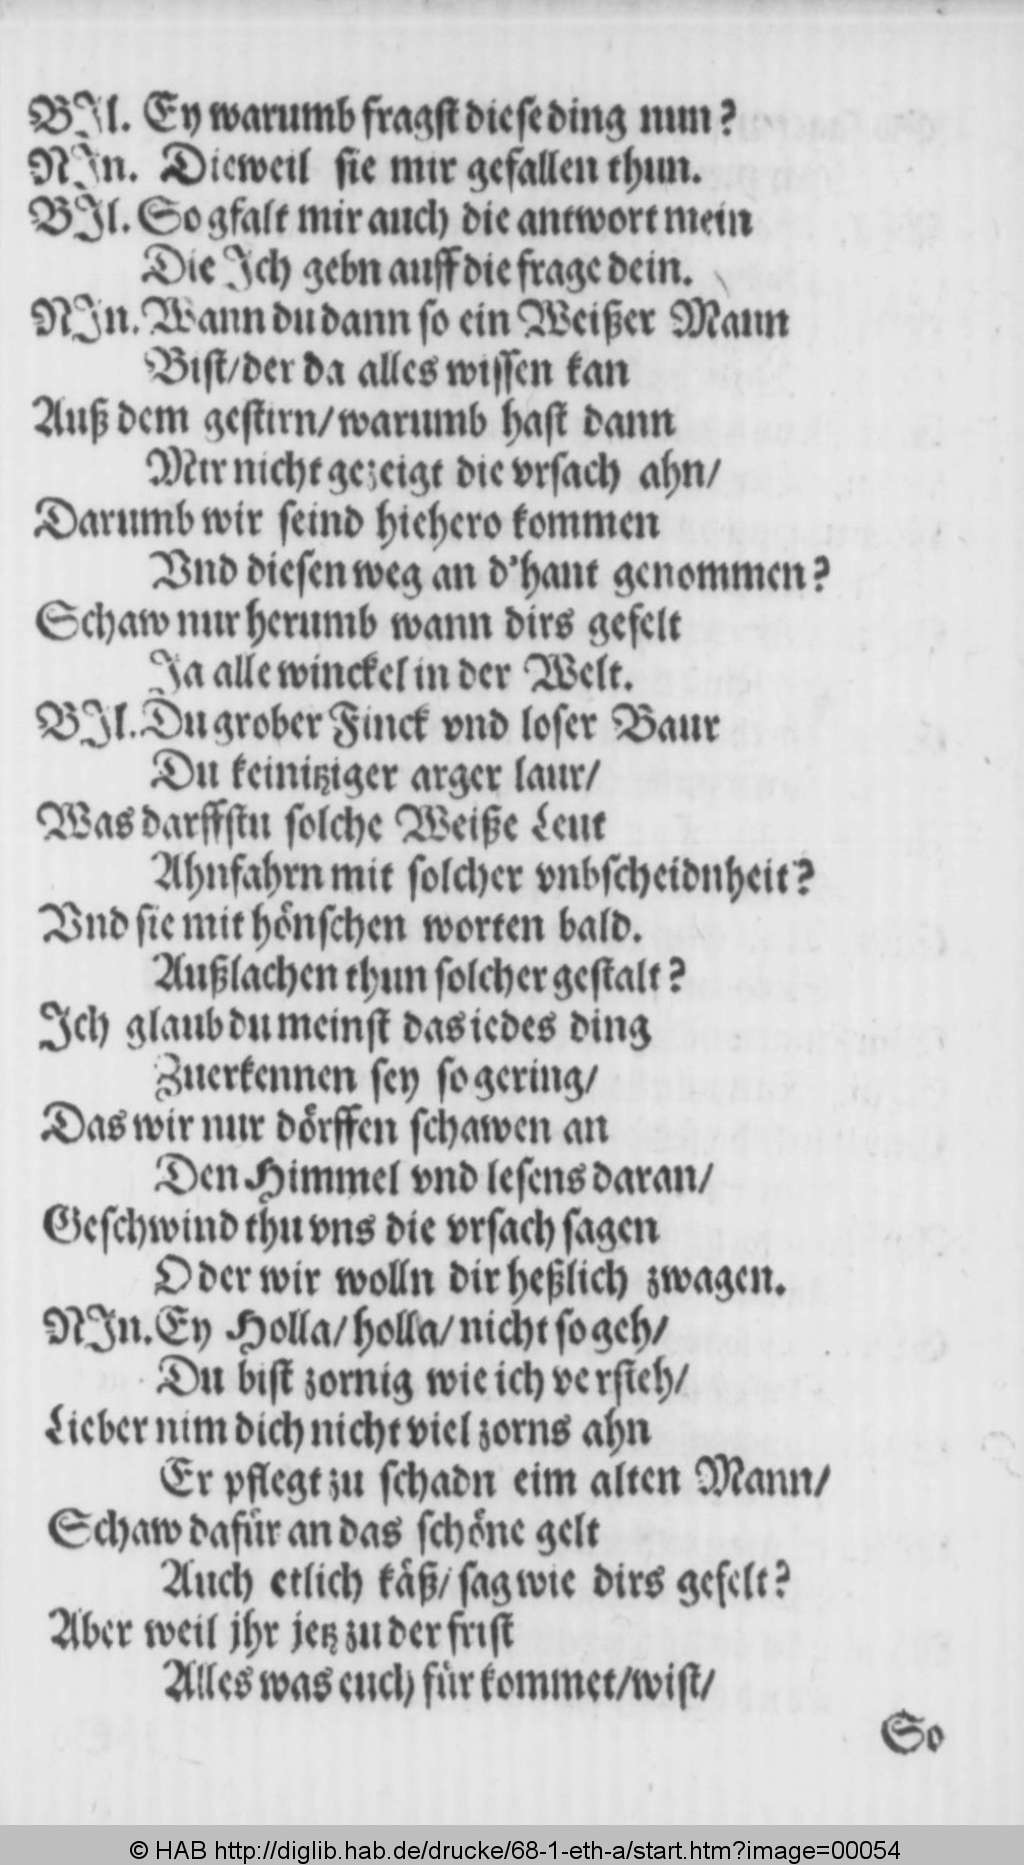 BJl. Ey warumb fragst diese ding nun?
NJn. Dieweil sie mir gefallen thun.
BJl. So gfalt mir auch die antwort mein
Die Jch gebn auff die frage dein.
NJn. Wann du dann so ein Weißer Mann
Bist/ der da alles wissen kan
Auß dem gestirn/ warumb hast dann
Mir nicht gezeigt die vrsach ahn/
Darumb wir seind hiehero kommen
Vnd diesen weg an d'hant genommen?
Schaw nur herumb wann dirs gefelt
Ja alle winckel in der Welt.
BJl. Du grober Finck vnd loser Baur
Du keinitziger arger laur/
Was darffstu solche Weiße Leut
Ahnfahrn mit solcher vnbscheidnheit?
Vnd sie mit hönschen worten bald.
Außlachen thun solcher gestalt?
Jch glaub du meinst das iedes ding
Zuerkennen sey so gering/
Das wir nur dörffen schawen an
Den Himmel vnd lesens daran/
Geschwind thu vns die vrsach sagen
Oder wir wolln dir heßlich zwagen.
NJn. Ey Holla/ holla/ nicht so geh/
Du bist zornig wie ich versteh/
Lieber nim dich nicht viel zorns ahn
Er pflegt zu schadn eim alten Mann/
Schaw dafür an das schöne gelt
Auch etlich käß/ sag wie dirs gefelt?
Aber weil jhr jetz zu der frist
Alles was euch für kommet/ wist/
So
© HAB http://diglib.hab.de/drucke/68-1-eth-a/start.htm?image=00054